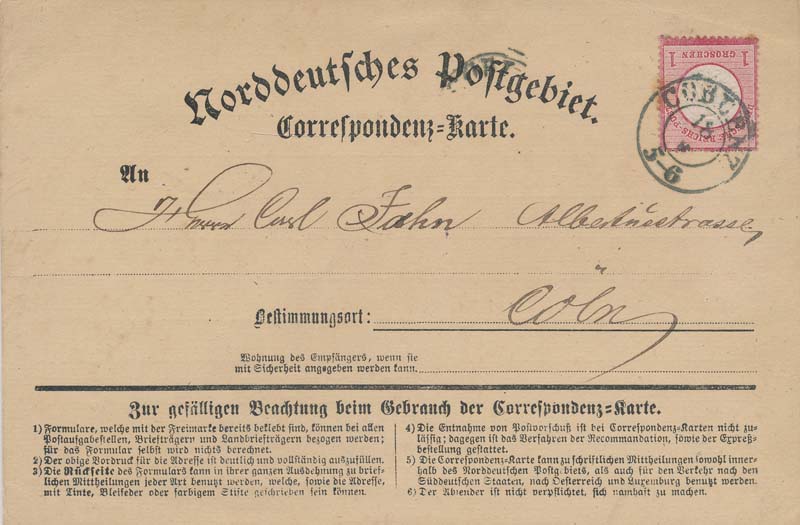 Norddeutsches Postgebiet.
Correspondenz=Karte.
1 GROSCHEN 1
COBURG
18
5-6
An
Herrn Carl Jahn Albertusstrasse,
Bestimmungsort: Cöln
Wohnung des Empfängers, wenn sie
mit Sicherheit angegeben werden kann.
Zur gefälligen Beachtung beim Gebrauch der Correspondenz=Karte.
1) Formulare, welche mit der Freimarke bereits beklebt sind, können bei allen
Postaufgabestellen, Briefträgern und Landbriefträgern bezogen werden;
für das Formular selbst wird nichts berechnet.
2) Der obige Vordruck für die Adresse ist deutlich und vollständig auszufüllen.
3) Die Rückseite des Formulars kann in ihrer ganzen Ausdehnung zu brief=
lichen Mittheilungen jeder Art benutzt werden, welche, sowie die Adresse,
mit Tinte, Bleifeder oder farbigem Stifte geschrieben sein können.
4) Die Entnahme von Postvorschuß ist bei Correspondenz=Karten nicht zu=
lässig; dagegen ist das Verfahren der Recommandation, sowie der Expreß=
bestellung gestattet.
5) Die Correspondenz=Karte kann zu schriftlichen Mittheilungen sowohl inner=
halb des Norddeutschen Postgebiets, als auch für den Verkehr nach den
Süddeutschen Staaten, nach Oesterreich und Luxemburg benutzt werden.
6) Der Absender ist nicht verpflichtet, sich namhaft zu machen.